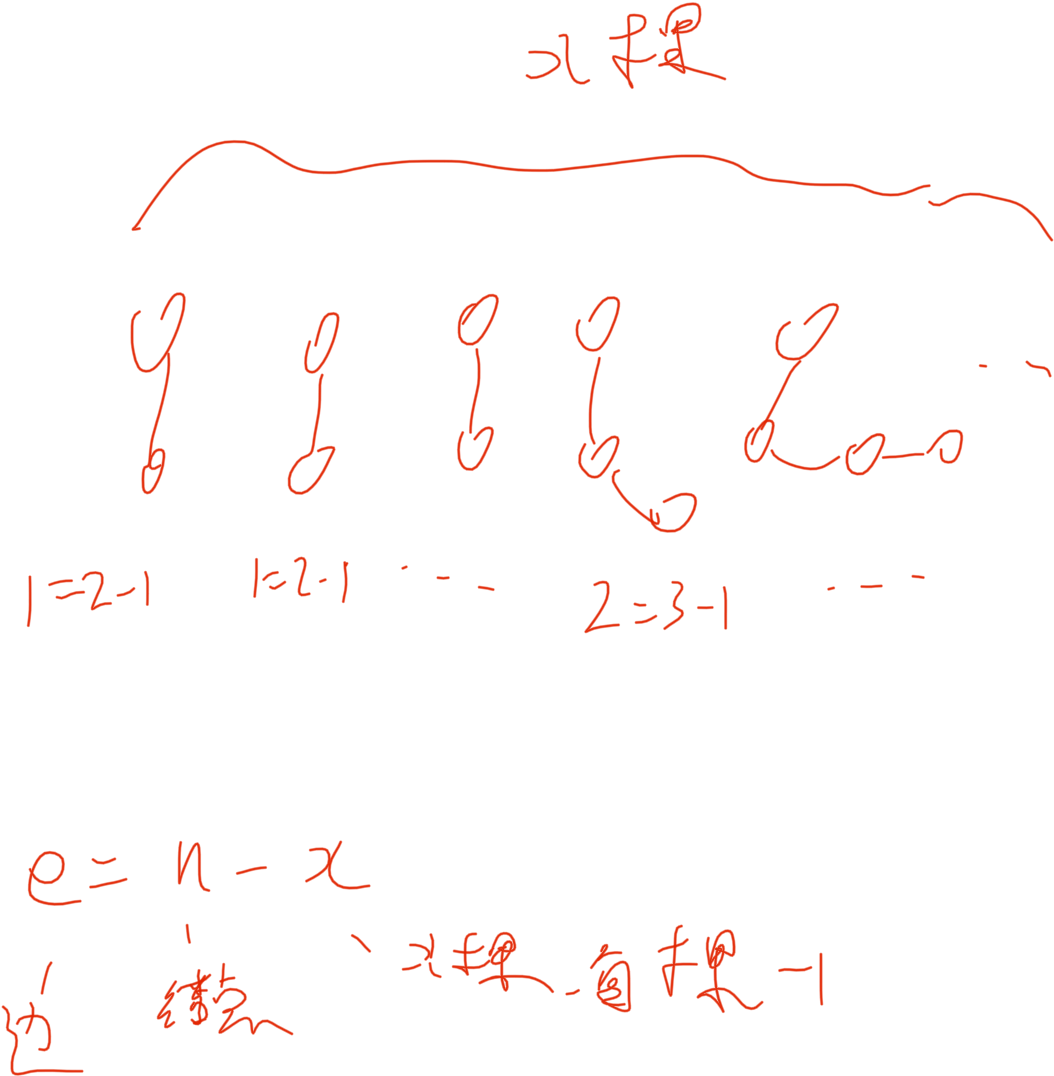 x棵
1=2-1 1=2-1 ... 2=3-1 ...
e=n-x
边 结点 x棵 每棵-1